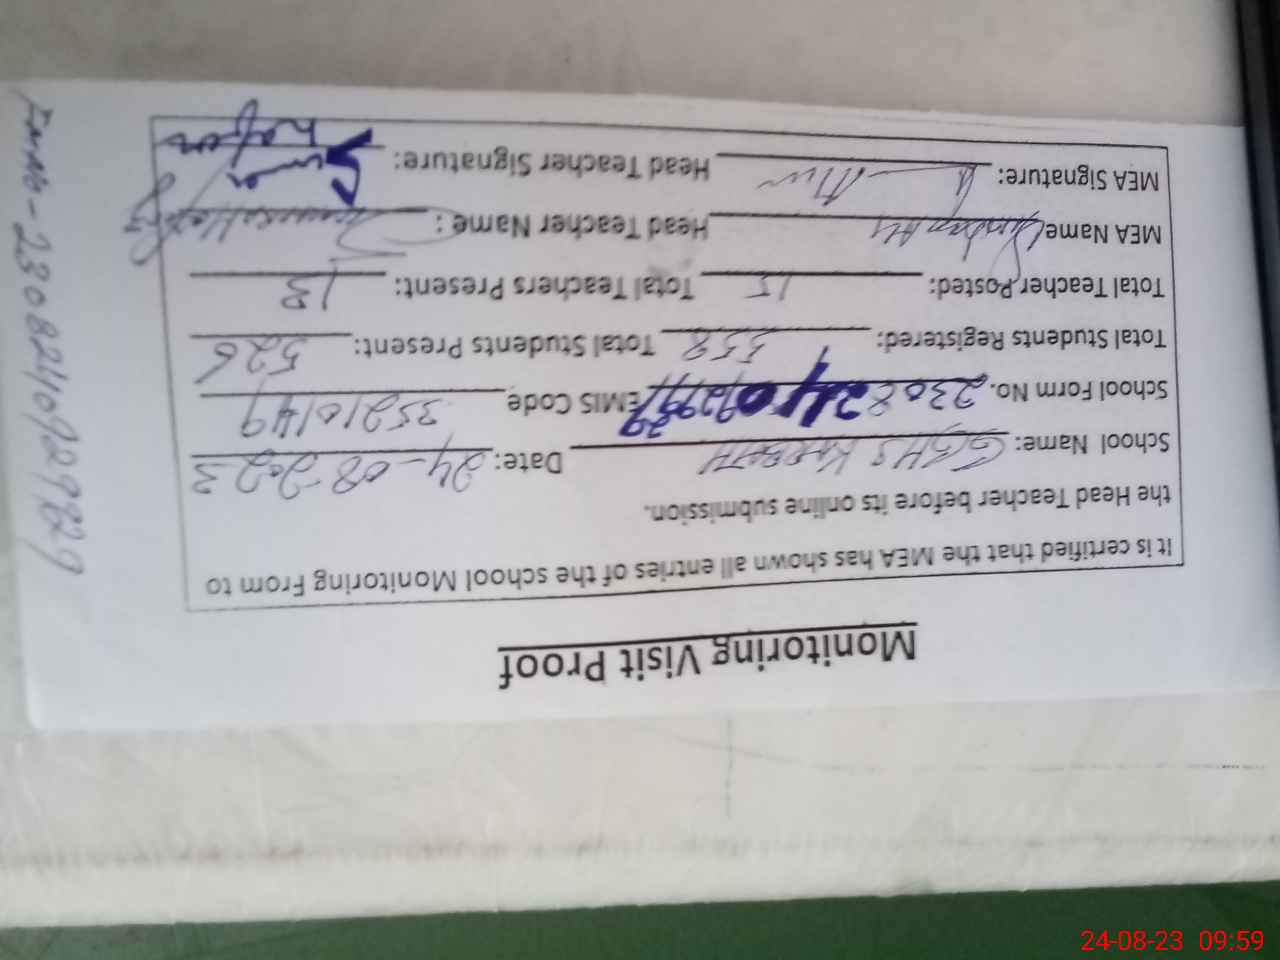 Monitoring Visit Proof
It is certified that the MEA has shown all entries of the school Monitoring From to
the Head Teacher before its online submission.
School Name: GGHS Date: 24-08-2023
School Form No. EMIS Code 35210149
Total Students Registered: 558 Total Students Present: 526
Total Teacher Posted: 15 Total Teachers Present: 13
MEA Name Head Teacher Name:
MEA Signature: Head Teacher Signature:
24-08-23 09:59